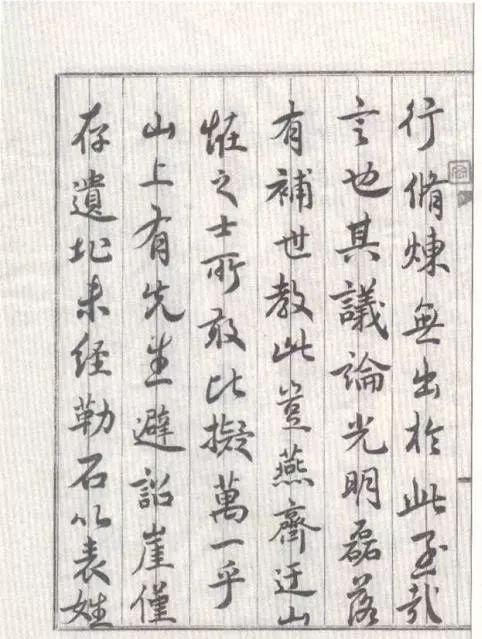 行脩煉無出於此至哉
言也其議論光明磊落
有補世教此豈燕齊迂
怪之士所敢比擬萬一乎
山上有先生避詔崖僅
存遺址未經勒石以表姓